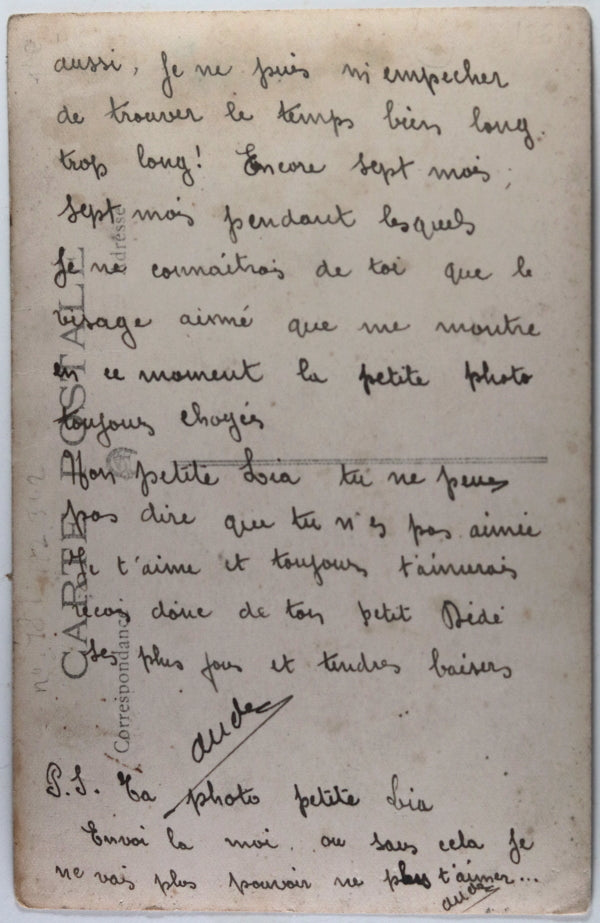 aussi, Je ne puis m'empecher
de trouver le temps bien long.
trop long! Encore sept mois,
sept mois pendant lesquels
Je ne connaitrais de toi que le
visage aimé que me montre
en ce moment la petite photo
toujours choyée
Mon petite Lia tu ne peux
pas dire que tu n'es pas aimée
Je t'aime et toujours t'aimerais
recois donc de ton petit Dédé
ses plus fous et tendres baisers
P.S. Ta photo petite Lia
Envoi la moi ou sans cela Je
ne vais plus pouvoir ne plus t'aimer...
CARTE POSTALE
Correspondance
Adresse